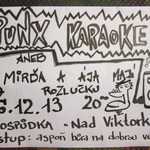 PUNX KARAOKE
ANEB
MÍRĎA A ÁJA MAJ
ROZLUČKU
6.12.13 20
OSPŮDKA - NAD VIKTORK
STUP: ASPOŇ BŮRA NA DOBROU